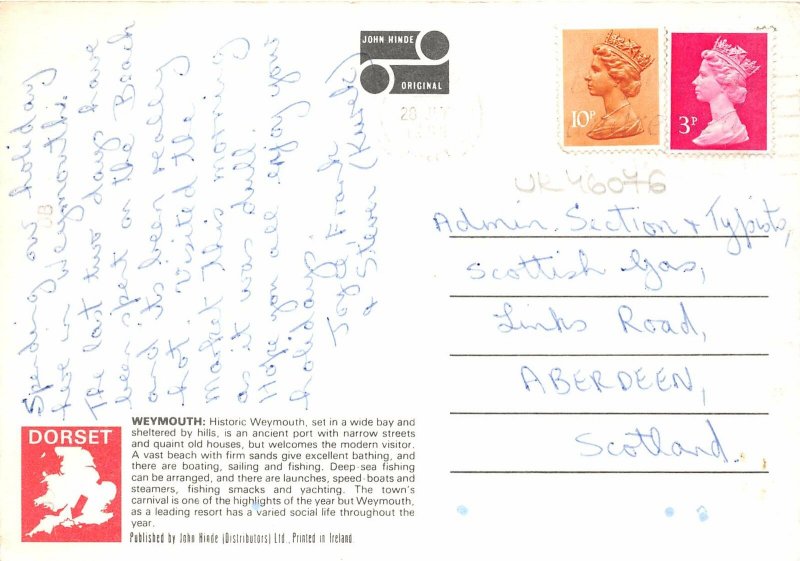 JOHN HINDE
ORIGINAL
10P
3P
UK46076
Spending our holiday
here in Weymouth.
The last two days have
been spent on the Beach
and its been really
hot. Visited the
market this morning
as it was dull.
Hope you all enjoy your
holidays.
Joyce, Frank
& Steven (Kurek)
Admin. Section & Typists,
Scottish Gas,
Links Road,
ABERDEEN,
Scotland.
DORSET
WEYMOUTH: Historic Weymouth, set in a wide bay and
sheltered by hills, is an ancient port with narrow streets
and quaint old houses, but welcomes the modern visitor.
A vast beach with firm sands give excellent bathing, and
there are boating, sailing and fishing. Deep-sea fishing
can be arranged, and there are launches, speed-boats and
steamers, fishing smacks and yachting. The town's
carnival is one of the highlights of the year but Weymouth,
as a leading resort has a varied social life throughout the
year.
Published by John Hinde (Distributors) Ltd., Printed in Ireland.